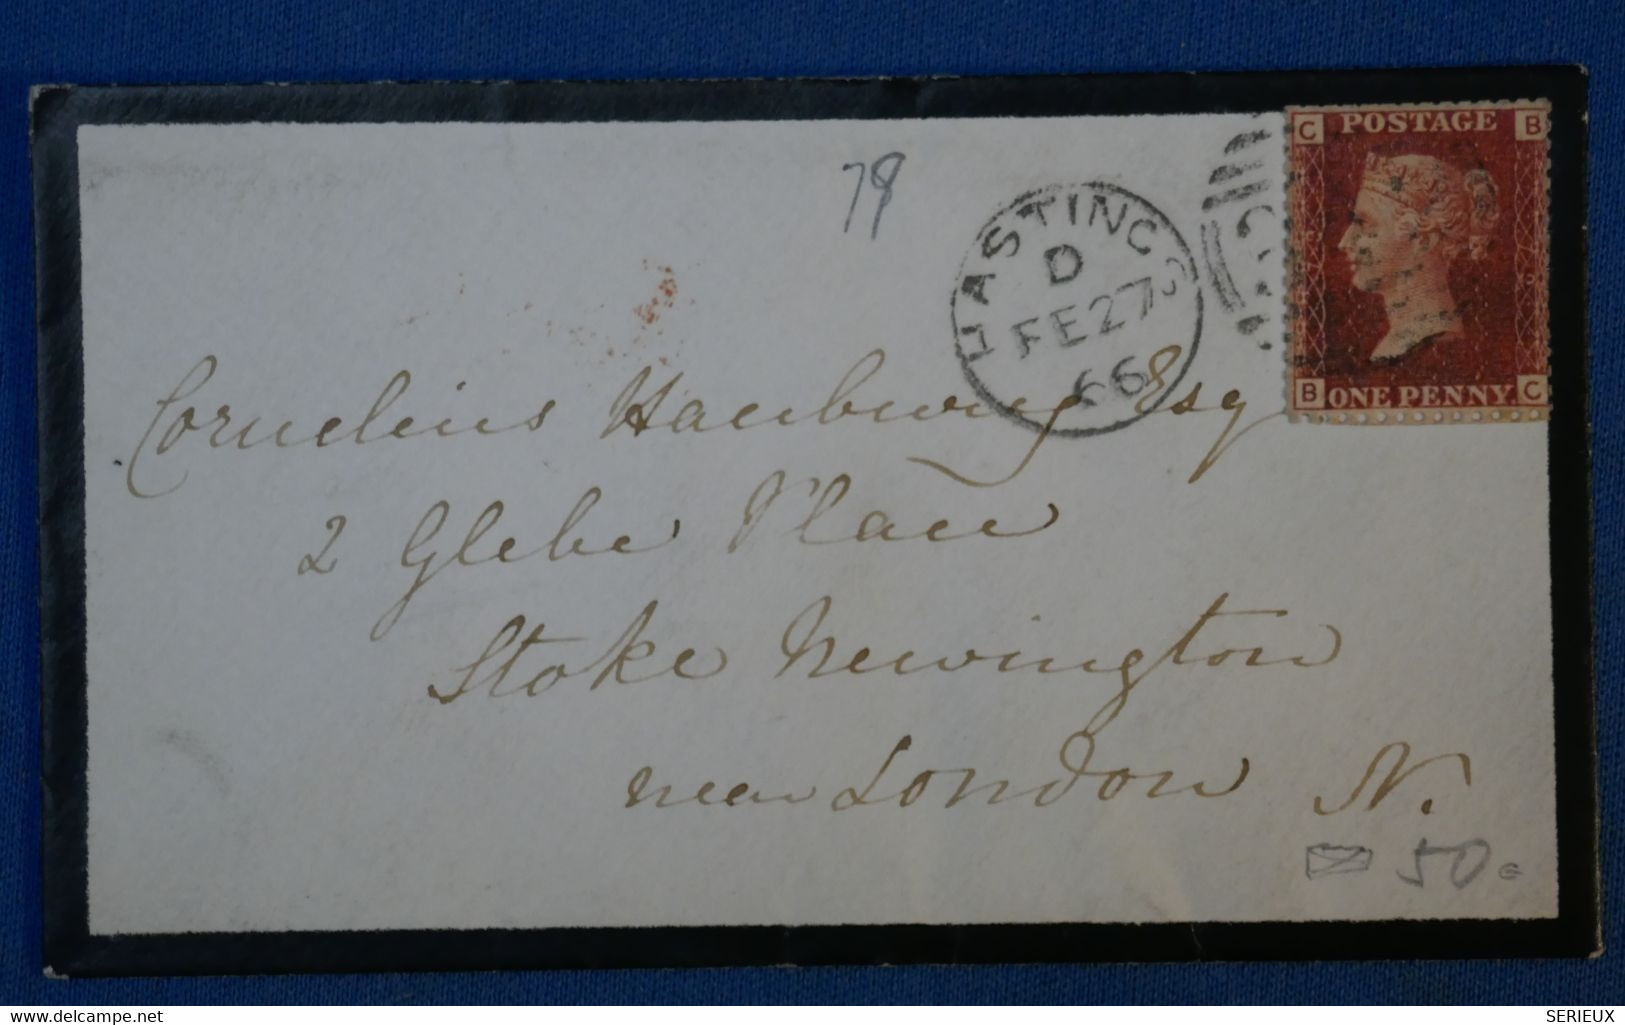 C POSTAGE B
78
HASTINGS
D
FE 27
66
B ONE PENNY C
Cornelius Hanbury Esq
2 Glebe Place
Stoke Newington
near London N.
50
www.delcampe.net
SERIEUX